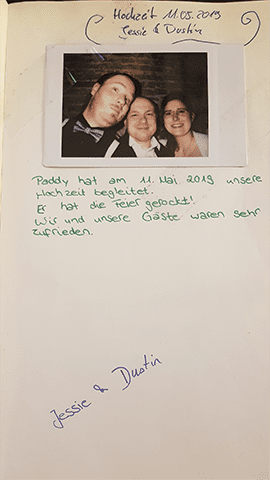 Hochzeit 11.05.2019
Jessie & Dustin
Paddy hat am 11. Mai 2019 unsere
Hochzeit begleitet.
Er hat die Feier gerockt!
Wir und unsere Gäste waren sehr
zufrieden.
Jessie & Dustin